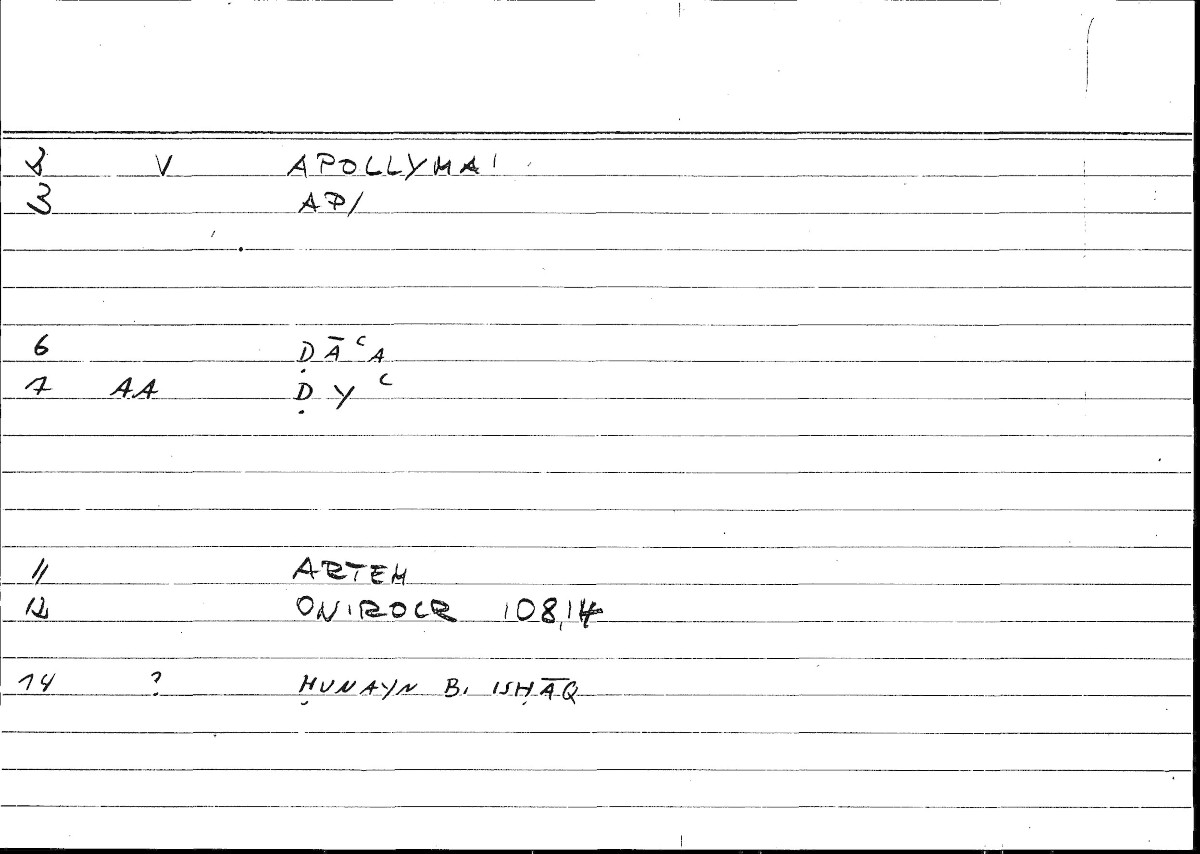 2 V APOLLYMAI
3 AP/
6 ḌĀʿA
7 AA ḌYʿ
11 ARTEM
12 ONIROCR 108,14
14 ? ḤUNAYN B. ISḤĀQ